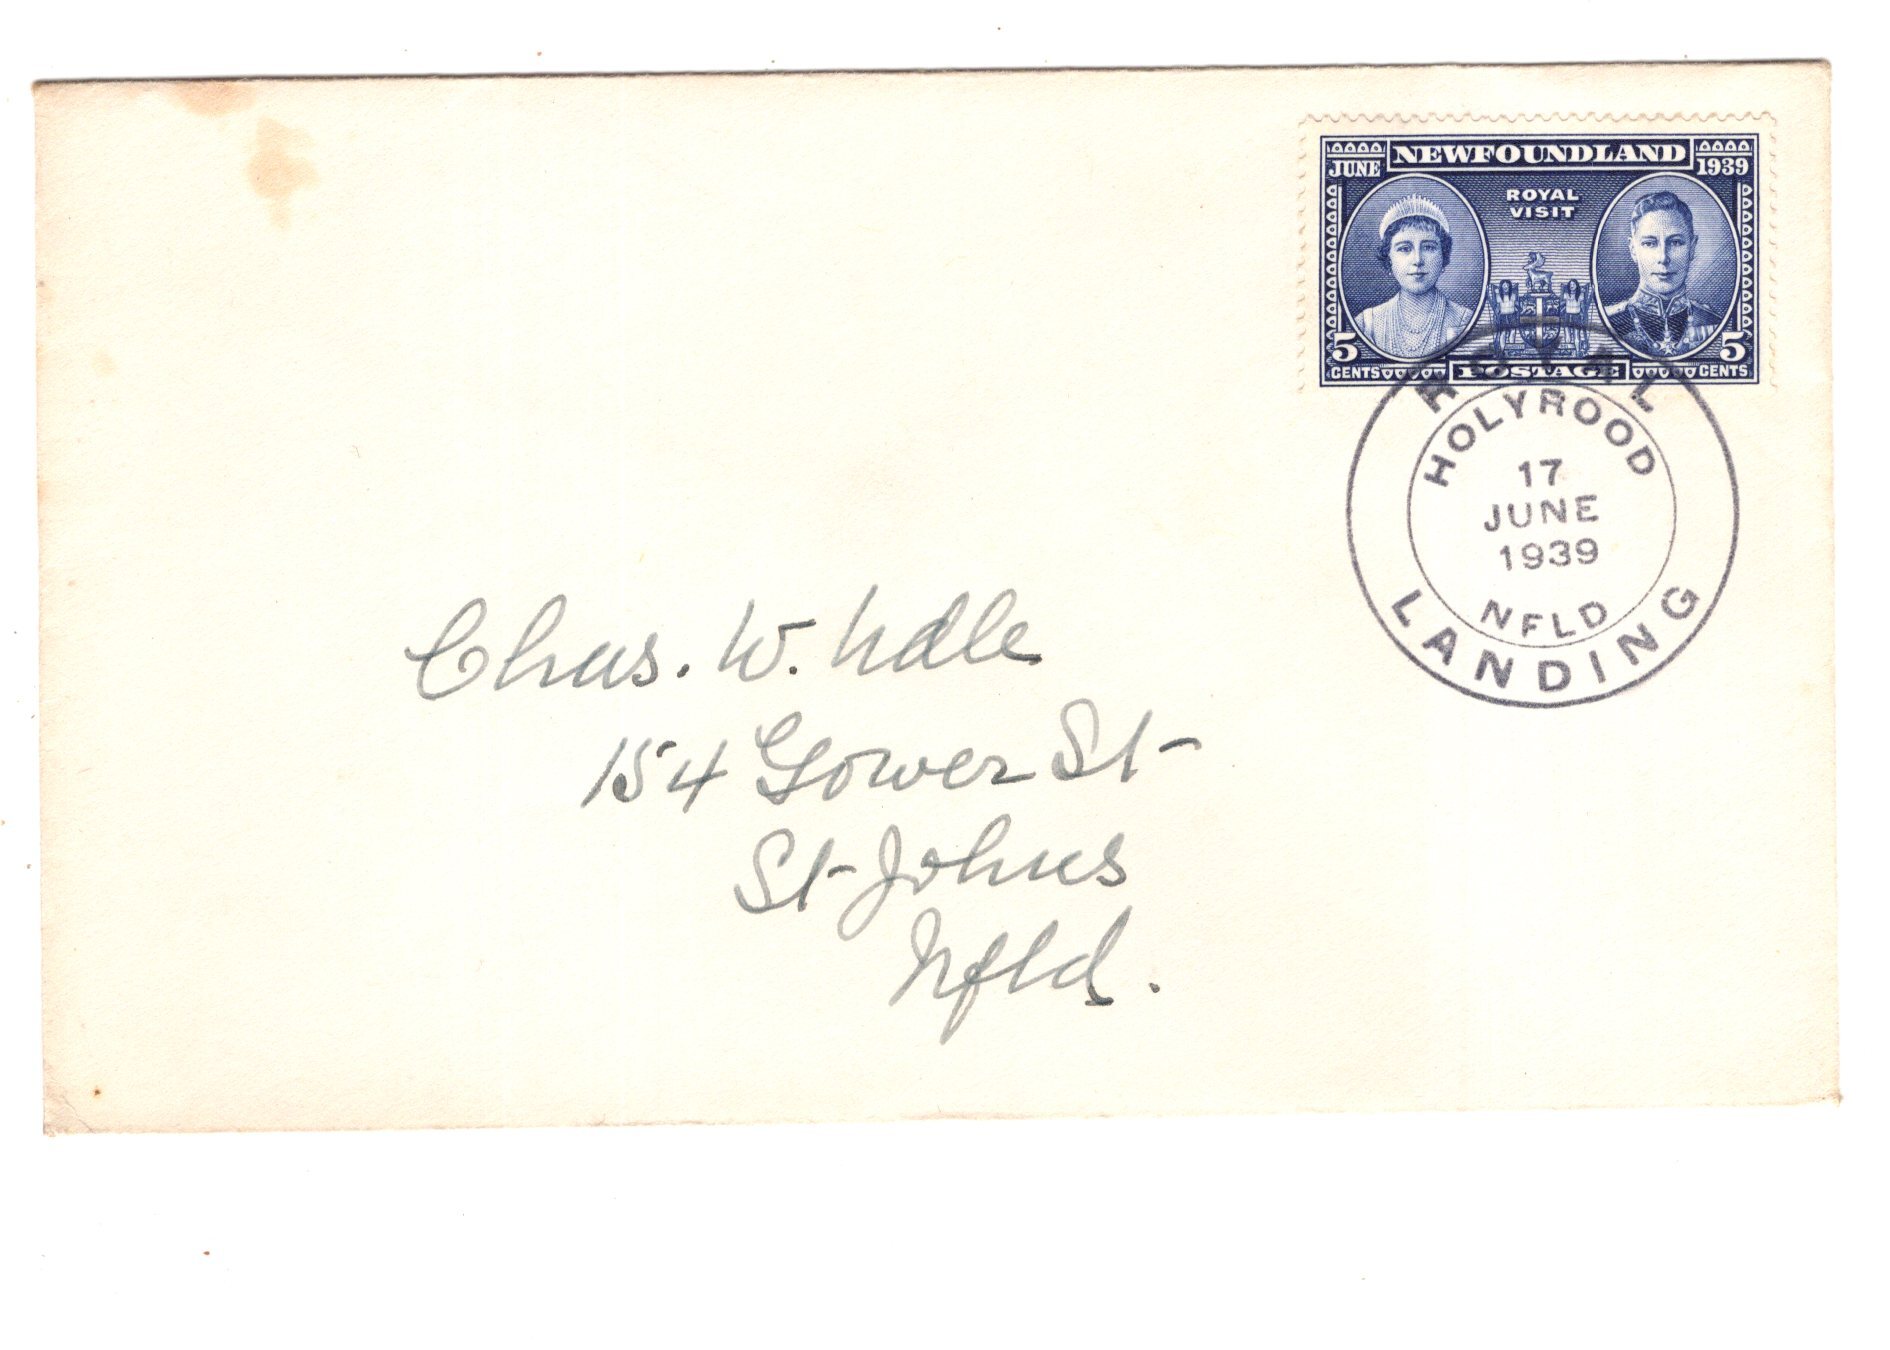 JUNE NEWFOUNDLAND 1939
ROYAL
VISIT
5 5
CENTS POSTAGE CENTS
ROYAL
HOLYROOD
17
JUNE
1939
NFLD
LANDING
Chas. W. Udle
154 Gower St
St Johns
Nfld.